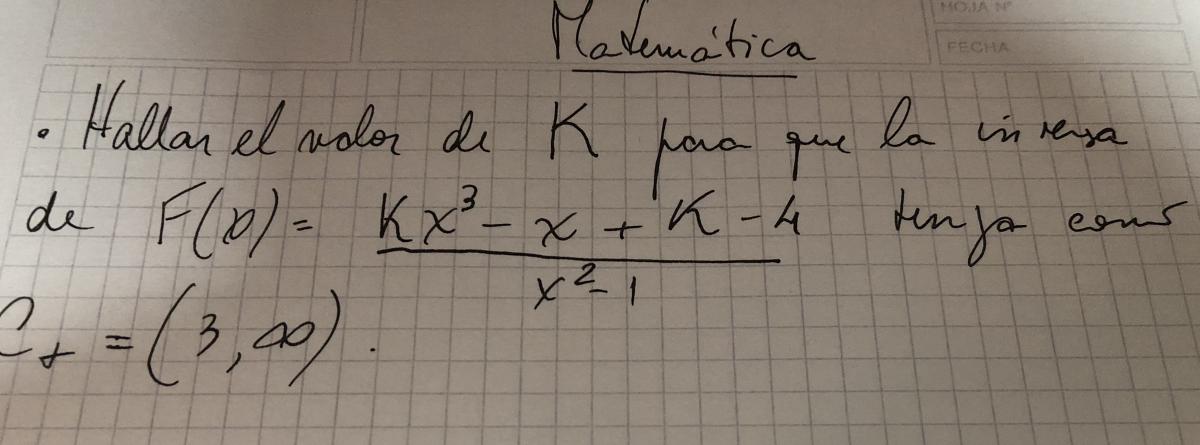 HOJA Nº
FECHA
Matemática
• Hallar el valor de K para que la inversa
de F(x) = (Kx³ - x + K - 4) / (x² - 1) tenga como
C+ = (3, ∞).